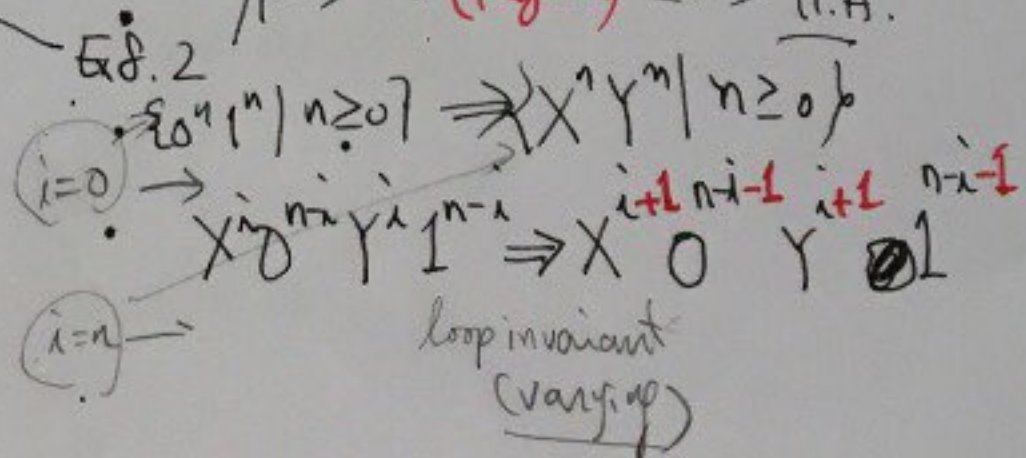 Ex8.2
{0ⁿ1ⁿ | n≥0} ⇒ {XⁿYⁿ | n≥0}
i=0 →
Xⁱ0ⁿ⁻ⁱYⁱ1ⁿ⁻ⁱ ⇒ Xⁱ⁺¹0ⁿ⁻ⁱ⁻¹Yⁱ⁺¹1ⁿ⁻ⁱ⁻¹
i=n →
loop invaiant
(varying)